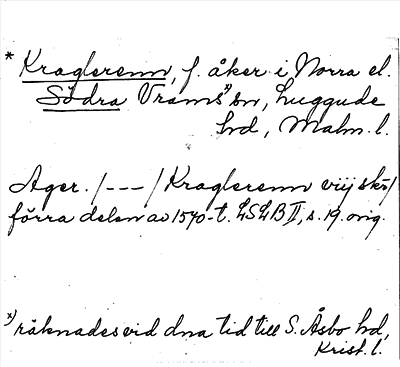 * Kraglerenn, f. åker i Norra el.
Södra Vrams x) sn, Luggude
hd, Malm. l.
Ager. /---/ Kraglerenn vij skr/
förra delen av 1570-t. LSLB II, s. 19. orig.
x) räknades vid dna tid till S. Åsbo hd,
Krist. l.